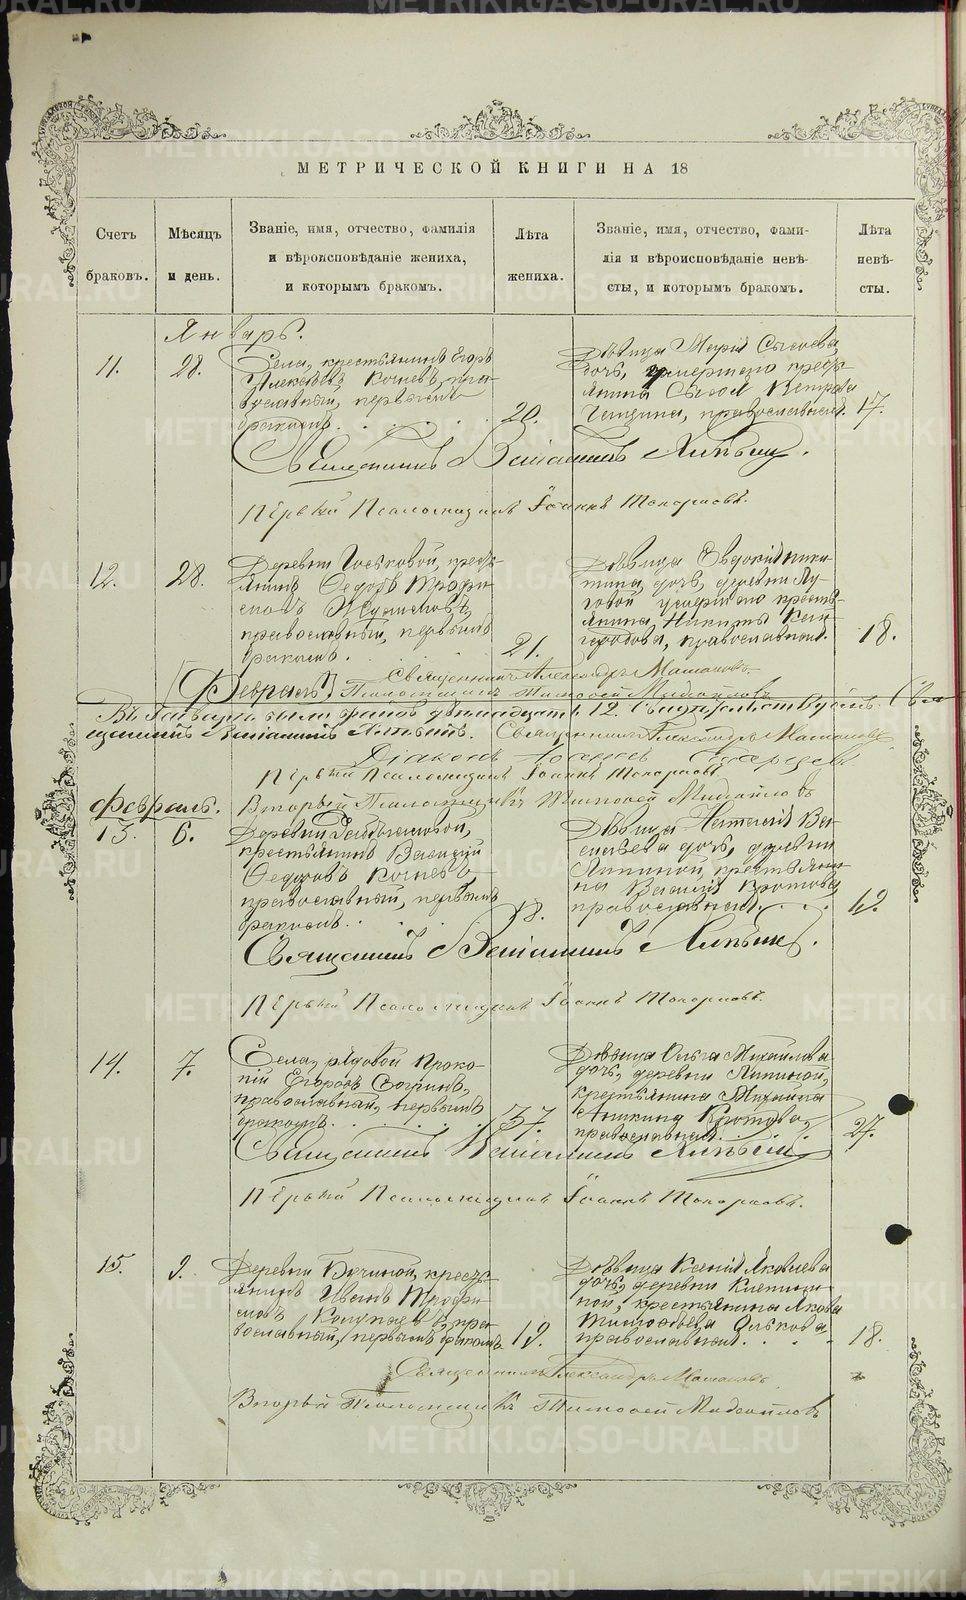 МЕТРИЧЕСКОЙ КНИГИ НА 18
Счетъ браковъ.
Мѣсяцъ и день.
Званіе, имя, отчество, фамилія
и вѣроисповѣданіе жениха,
и которымъ бракомъ.
Лѣта жениха.
Званіе, имя, отчество, фами-
лія и вѣроисповѣданіе невѣ-
сты, и которымъ бракомъ.
Лѣта невѣ-
сты.
Январь.
11.
28.
Села, крестьянинъ Егоръ
Алексѣевъ Кочневъ, пра-
вославный, первымъ
бракомъ.
20.
Дѣвица Марія Сысоева,
дочь, умершего кресть-
янина Сысоя Петрова
православная.
17.
Священникъ Веніаминъ
Первый Псаломщикъ Іоаннъ Топорковъ.
12.
28.
Деревни кресть-
янинъ Ѳедоръ Трофи-
мовъ
православный, первымъ
бракомъ.
21.
Дѣвица Евдокія Ники-
тина, дочь, деревни Лу-
говой умершего кресть-
янина Никиты
православная.
18.
Священникъ Александръ
[Февраль]
Псаломщикъ Тимоѳей Михайловъ
Въ Январѣ было браковъ двѣнадцать 12. Свидѣтельствуемъ: Свя-
щенникъ Веніаминъ Священникъ Александръ
Діаконъ Іоаннъ
Первый Псаломщикъ Іоаннъ Топорковъ
Февраль.
Второй Псаломщикъ Тимоѳей Михайловъ
13.
6.
Деревни
крестьянинъ Василій
Ѳедоровъ Кочневъ,
православный, первымъ
бракомъ.
18.
Дѣвица Наталія Ва-
сильева дочь, деревни
Липиной, крестьяни-
на Василія Кротова,
православная.
19.
Священникъ Веніаминъ
Первый Псаломщикъ Іоаннъ Топорковъ.
14.
7.
Села, рядовой Проко-
пій Егоровъ
православный, первымъ
бракомъ.
37.
Дѣвица Ольга Михайлова
дочь, деревни Липиной,
крестьянина Михаила
Аникина Кротова,
православная.
27.
Священникъ Веніаминъ
Первый Псаломщикъ Іоаннъ Топорковъ.
15.
9.
Деревни Бучиной, кресть-
янинъ Иванъ Трофи-
мовъ Колупаевъ, пра-
вославный, первымъ бракомъ
19.
Дѣвица Ксенія Яковлева
дочь, деревни
крестьянина Якова
Тимоѳеева Олькова
православная.
18.
Священникъ Александръ
Второй Псаломщикъ Тимоѳей Михайловъ
METRIKI.GASO-URAL.RU